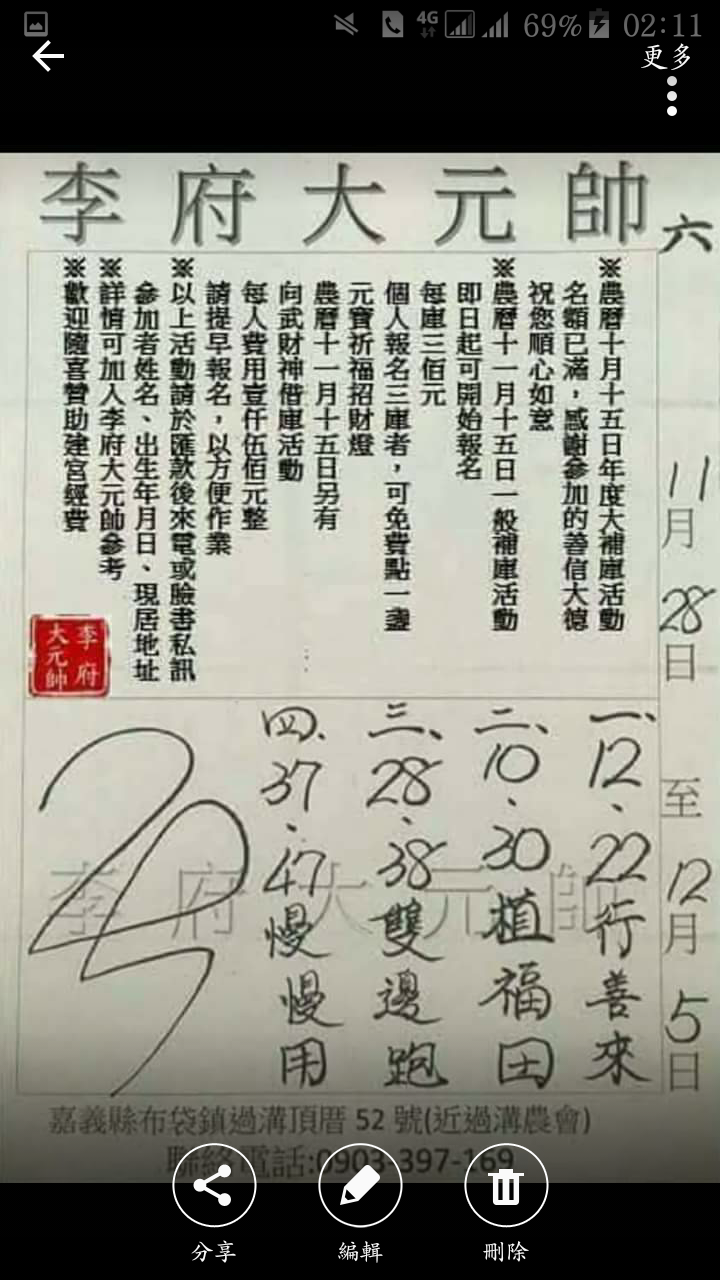 69% 02:11
4G
更多
李府大元帥
六
11月28日 至 12月5日
※農曆十月十五日年度大補庫活動
名額已滿,感謝參加的善信大德
祝您順心如意
※農曆十一月十五日一般補庫活動
即日起可開始報名
每庫三佰元
個人報名三庫者,可免費點一盞
元寶祈福招財燈
農曆十一月十五日另有
向武財神借庫活動
每人費用壹仟伍佰元整
請提早報名,以方便作業
※以上活動請於匯款後來電或臉書私訊
參加者姓名、出生年月日、現居地址
※詳情可加入李府大元帥參考
※歡迎隨喜贊助建宮經費
李府
大元帥
一、12、22行善來
二、10、30植福田
三、28、38雙邊跑
四、37、47慢慢用
李府大元帥
嘉義縣布袋鎮過溝頂厝 52 號(近過溝農會)
聯絡電話:0903-397-169
分享
編輯
刪除